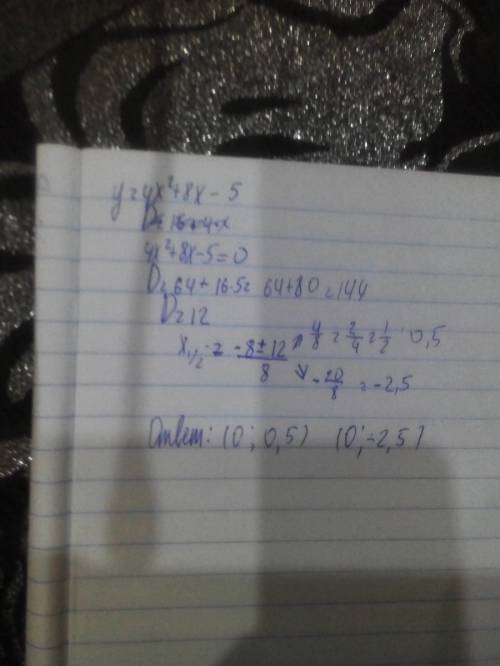 y=4x²+8x-5
D=16+4·x
4x²+8x-5=0
D=64+16·5= 64+80=144
D=12
x₁/₂ = -8±12/8 ↗ 4/8=2/4=1/2 0,5
↘ -20/8 = -2,5
Ответ: (0; 0,5) (0; -2,5)